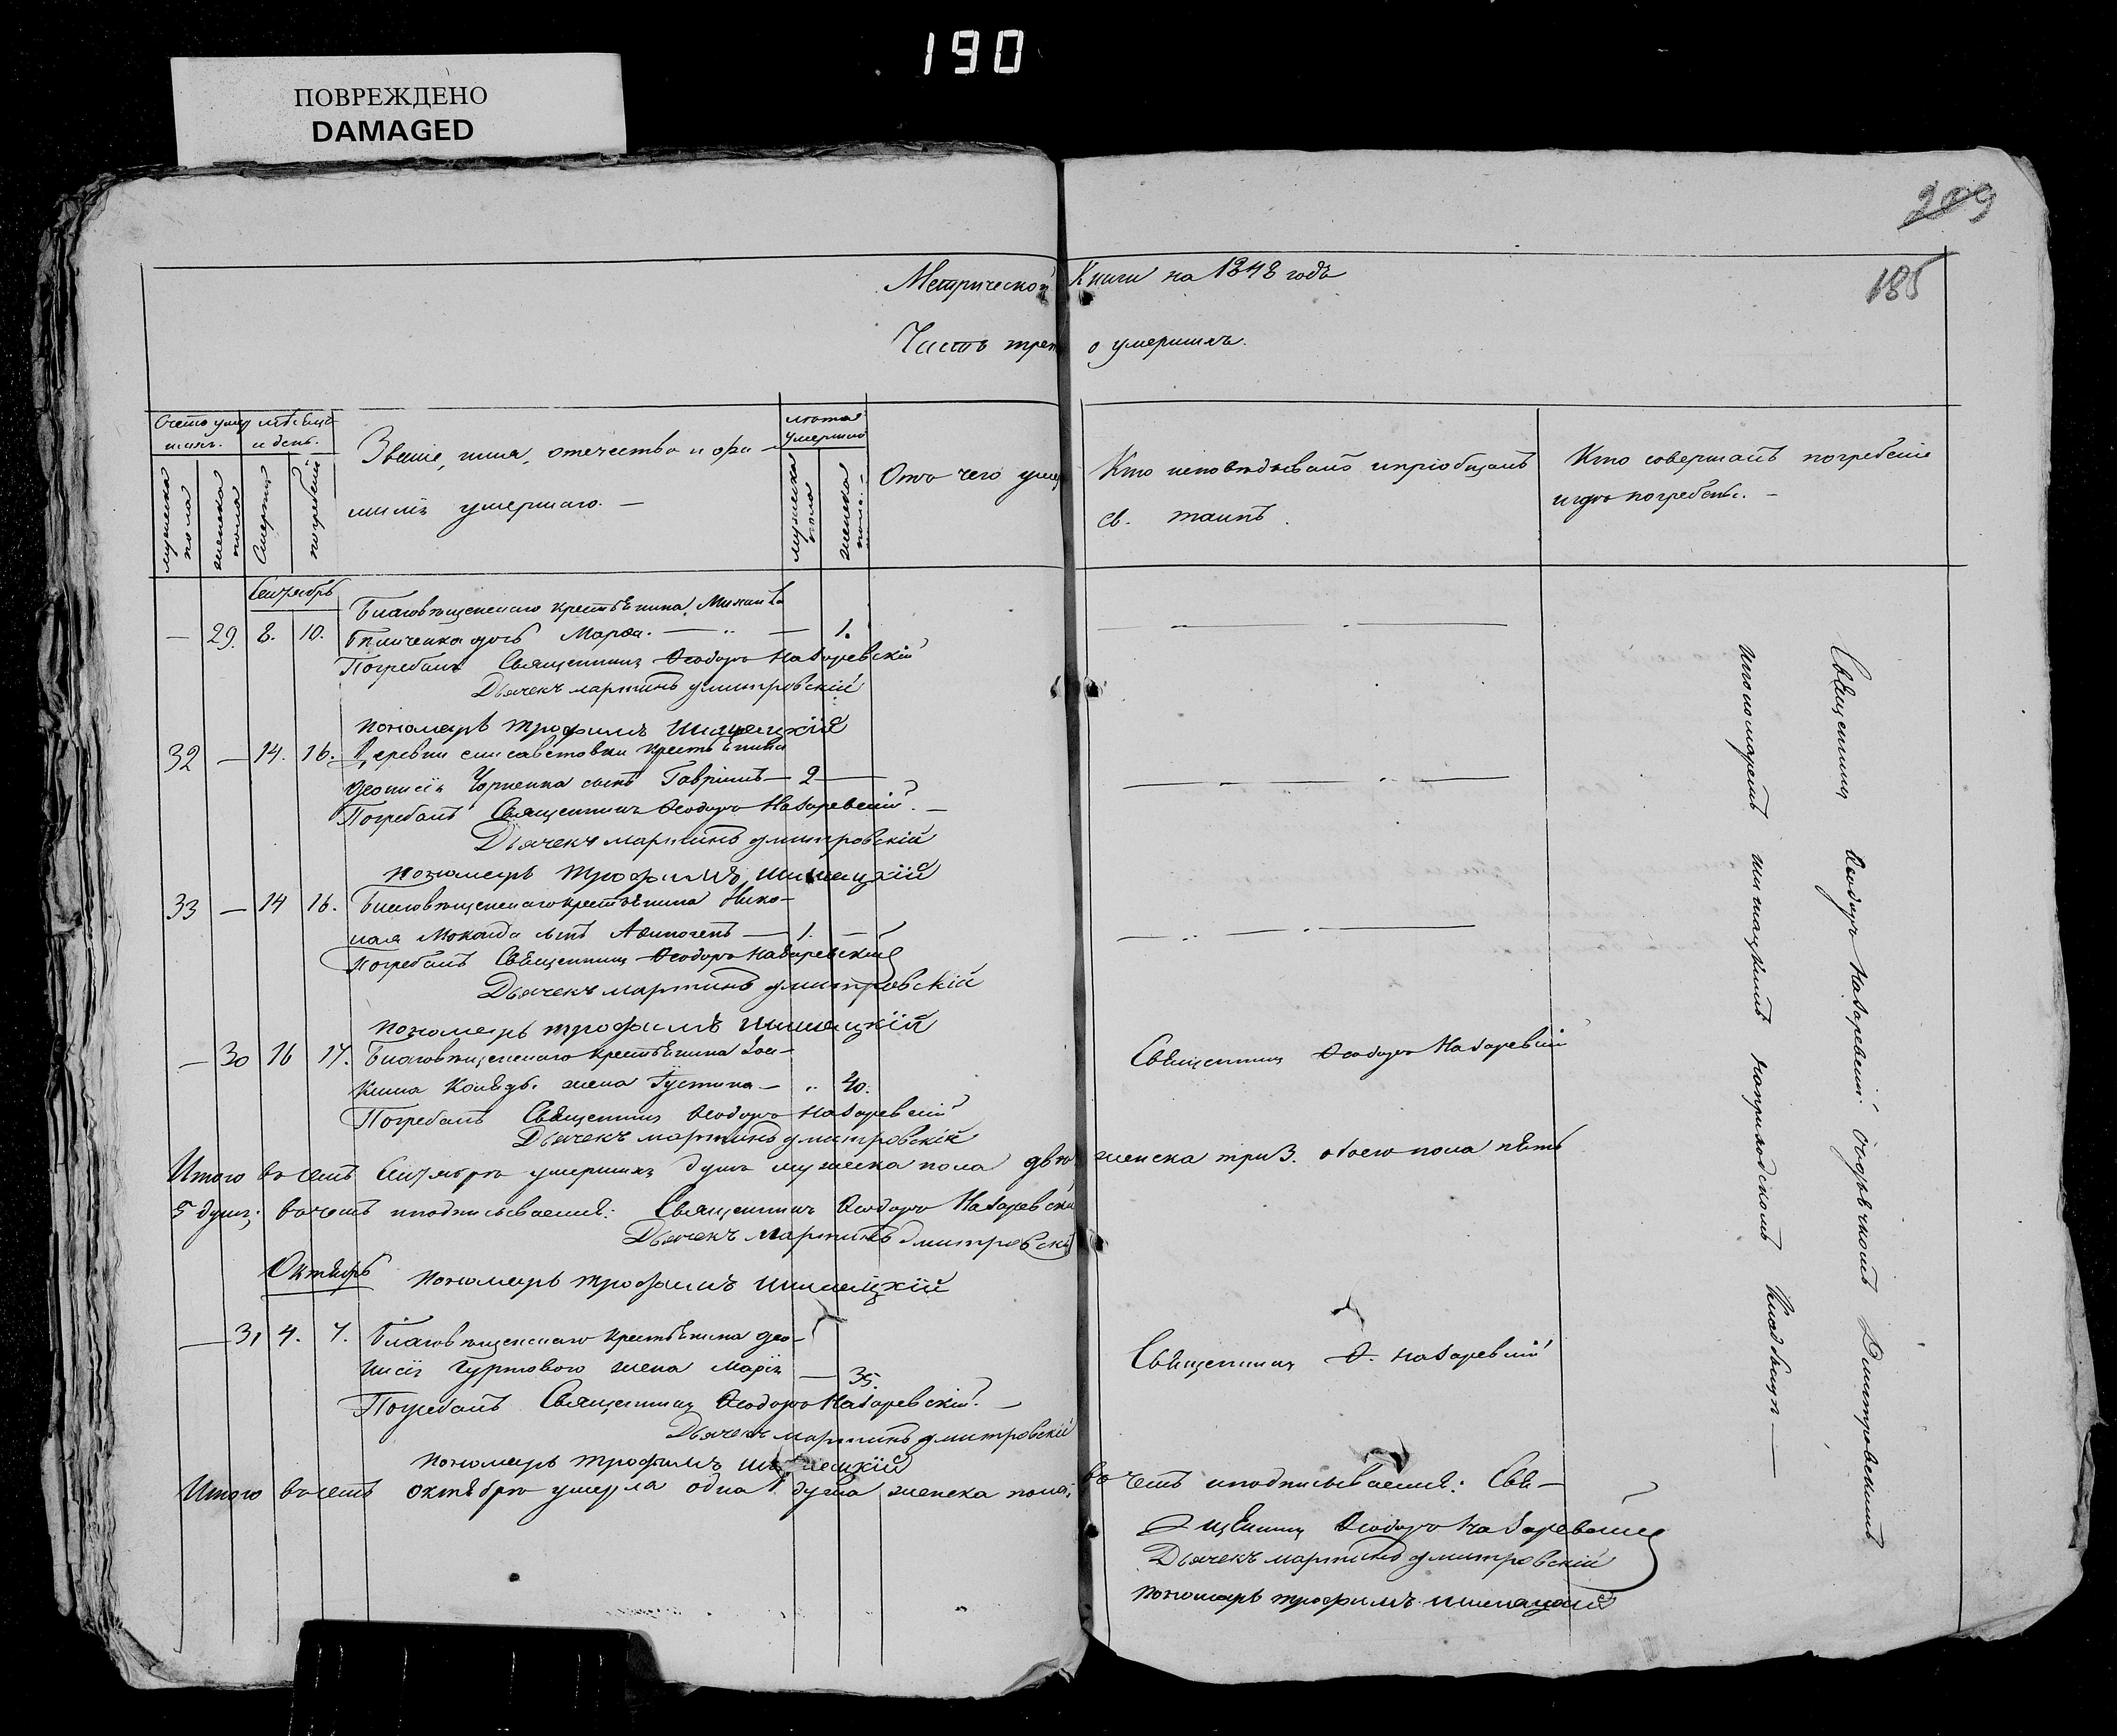 190
ПОВРЕЖДЕНО
DAMAGED
209
185
Метрической Книги на 1848 годъ
Часть трет о умершихъ.
Счетъ умер
шихъ.
мужеска пола
женска пола
мѣсяцъ
и день.
Смерти
погребенія
Званіе, имя, отечество и фа-
милія умершаго. —
лѣта
умершаго
мужеска пола
женска пола. —
Отъ чего умер
Кто исповѣдывалъ и пріобщалъ
св. таинъ.
Кто совершалъ погребеніе
и гдѣ погребенъ. —
Сентябрь
Благовѣщенскаго крестьянина Михаила
— 29. 8. 10. дочь Марѳа. — „ — 1.
Погребалъ Священникъ Ѳеодоръ Назаревскій
Дьячекъ мартинъ дмитровскій
пономарь трофимъ шишацкій
32 — 14. 16. Деревни елисаветовки крестьянина
деонисія Чорненка сынъ Гавріилъ — 2 —
Погребалъ Священникъ Ѳеодоръ Назаревскій. —
Дьячекъ мартинъ дмитровскій
пономарь трофимъ шишацкій
33 — 14 16. Благовѣщенскаго крестьянина Нико-
лая сынъ Аѳиногенъ — 1. —
Погребалъ Священникъ Ѳеодоръ Назаревскій
Дьячекъ мартинъ дмитровскій
пономарь трофимъ шишацкій
— 30 16 17. Благовѣщенскаго крестьянина Іоа-
кима жена Іустина — „ 40.
Священникъ Ѳеодоръ Назаревскій
Погребалъ Священникъ Ѳеодоръ Назаревскій
Дьячекъ мартинъ дмитровскій
Итого въ семъ Сентябрѣ умершихъ душъ мужеска пола двѣ женска три 3. обоего пола пять
5 душъ; въ чемъ и подписываемся: Священникъ Ѳеодоръ Назаревскій
Дьячекъ Мартинъ дмитровскій
Октябрь пономарь трофимъ шишацкій
— 31 4. 7. Благовѣщенскаго крестьянина део-
нисія Гуртового жена Марія — 35.
Священникъ Ѳ. Назаревскій
Погребалъ Священникъ Ѳеодоръ Назаревскій. —
Дьячекъ мартинъ дмитровскій
пономарь трофимъ шишацкій
Итого въ семъ октябрѣ умерла одна 1 душа женска пола; въ чемъ и подписываемся: Свя-
щенникъ Ѳеодоръ Назаревскій
Дьячекъ мартинъ дмитровскій
пономарь трофимъ шишацкій
Священникъ Ѳеодоръ Назаревскій съ дьячкомъ Дмитровскимъ
и пономаремъ шишацкимъ на приходскомъ Кладбищѣ —